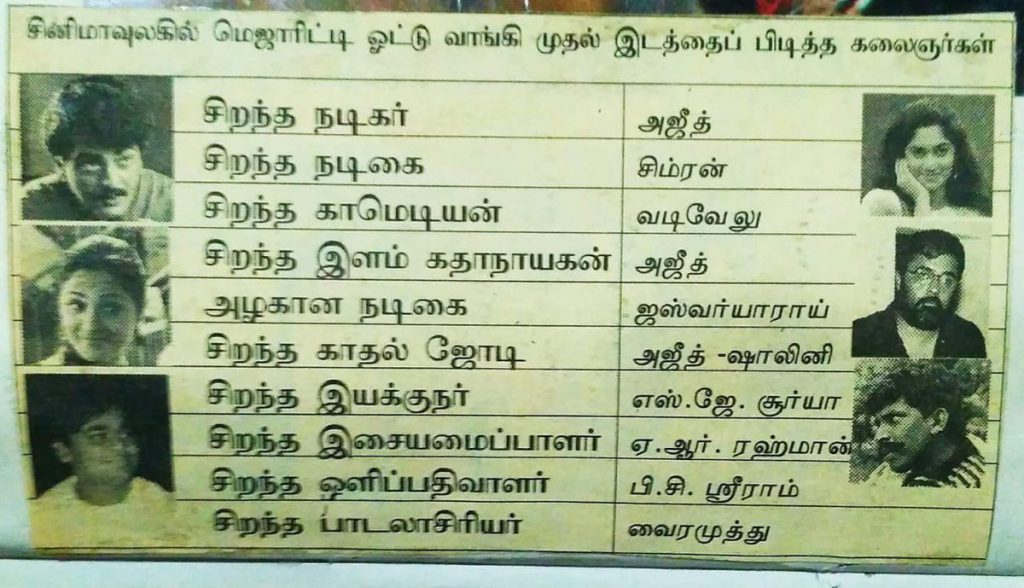 சினிமாவுலகில் மெஜாரிட்டி ஓட்டு வாங்கி முதல் இடத்தைப் பிடித்த கலைஞர்கள்
சிறந்த நடிகர் அஜீத்
சிறந்த நடிகை சிம்ரன்
சிறந்த காமெடியன் வடிவேலு
சிறந்த இளம் கதாநாயகன் அஜீத்
அழகான நடிகை ஐஸ்வர்யாராய்
சிறந்த காதல் ஜோடி அஜீத் -ஷாலினி
சிறந்த இயக்குநர் எஸ்.ஜே. சூர்யா
சிறந்த இசையமைப்பாளர் ஏ.ஆர். ரஹ்மான்
சிறந்த ஒளிப்பதிவாளர் பி.சி. ஸ்ரீராம்
சிறந்த பாடலாசிரியர் வைரமுத்து